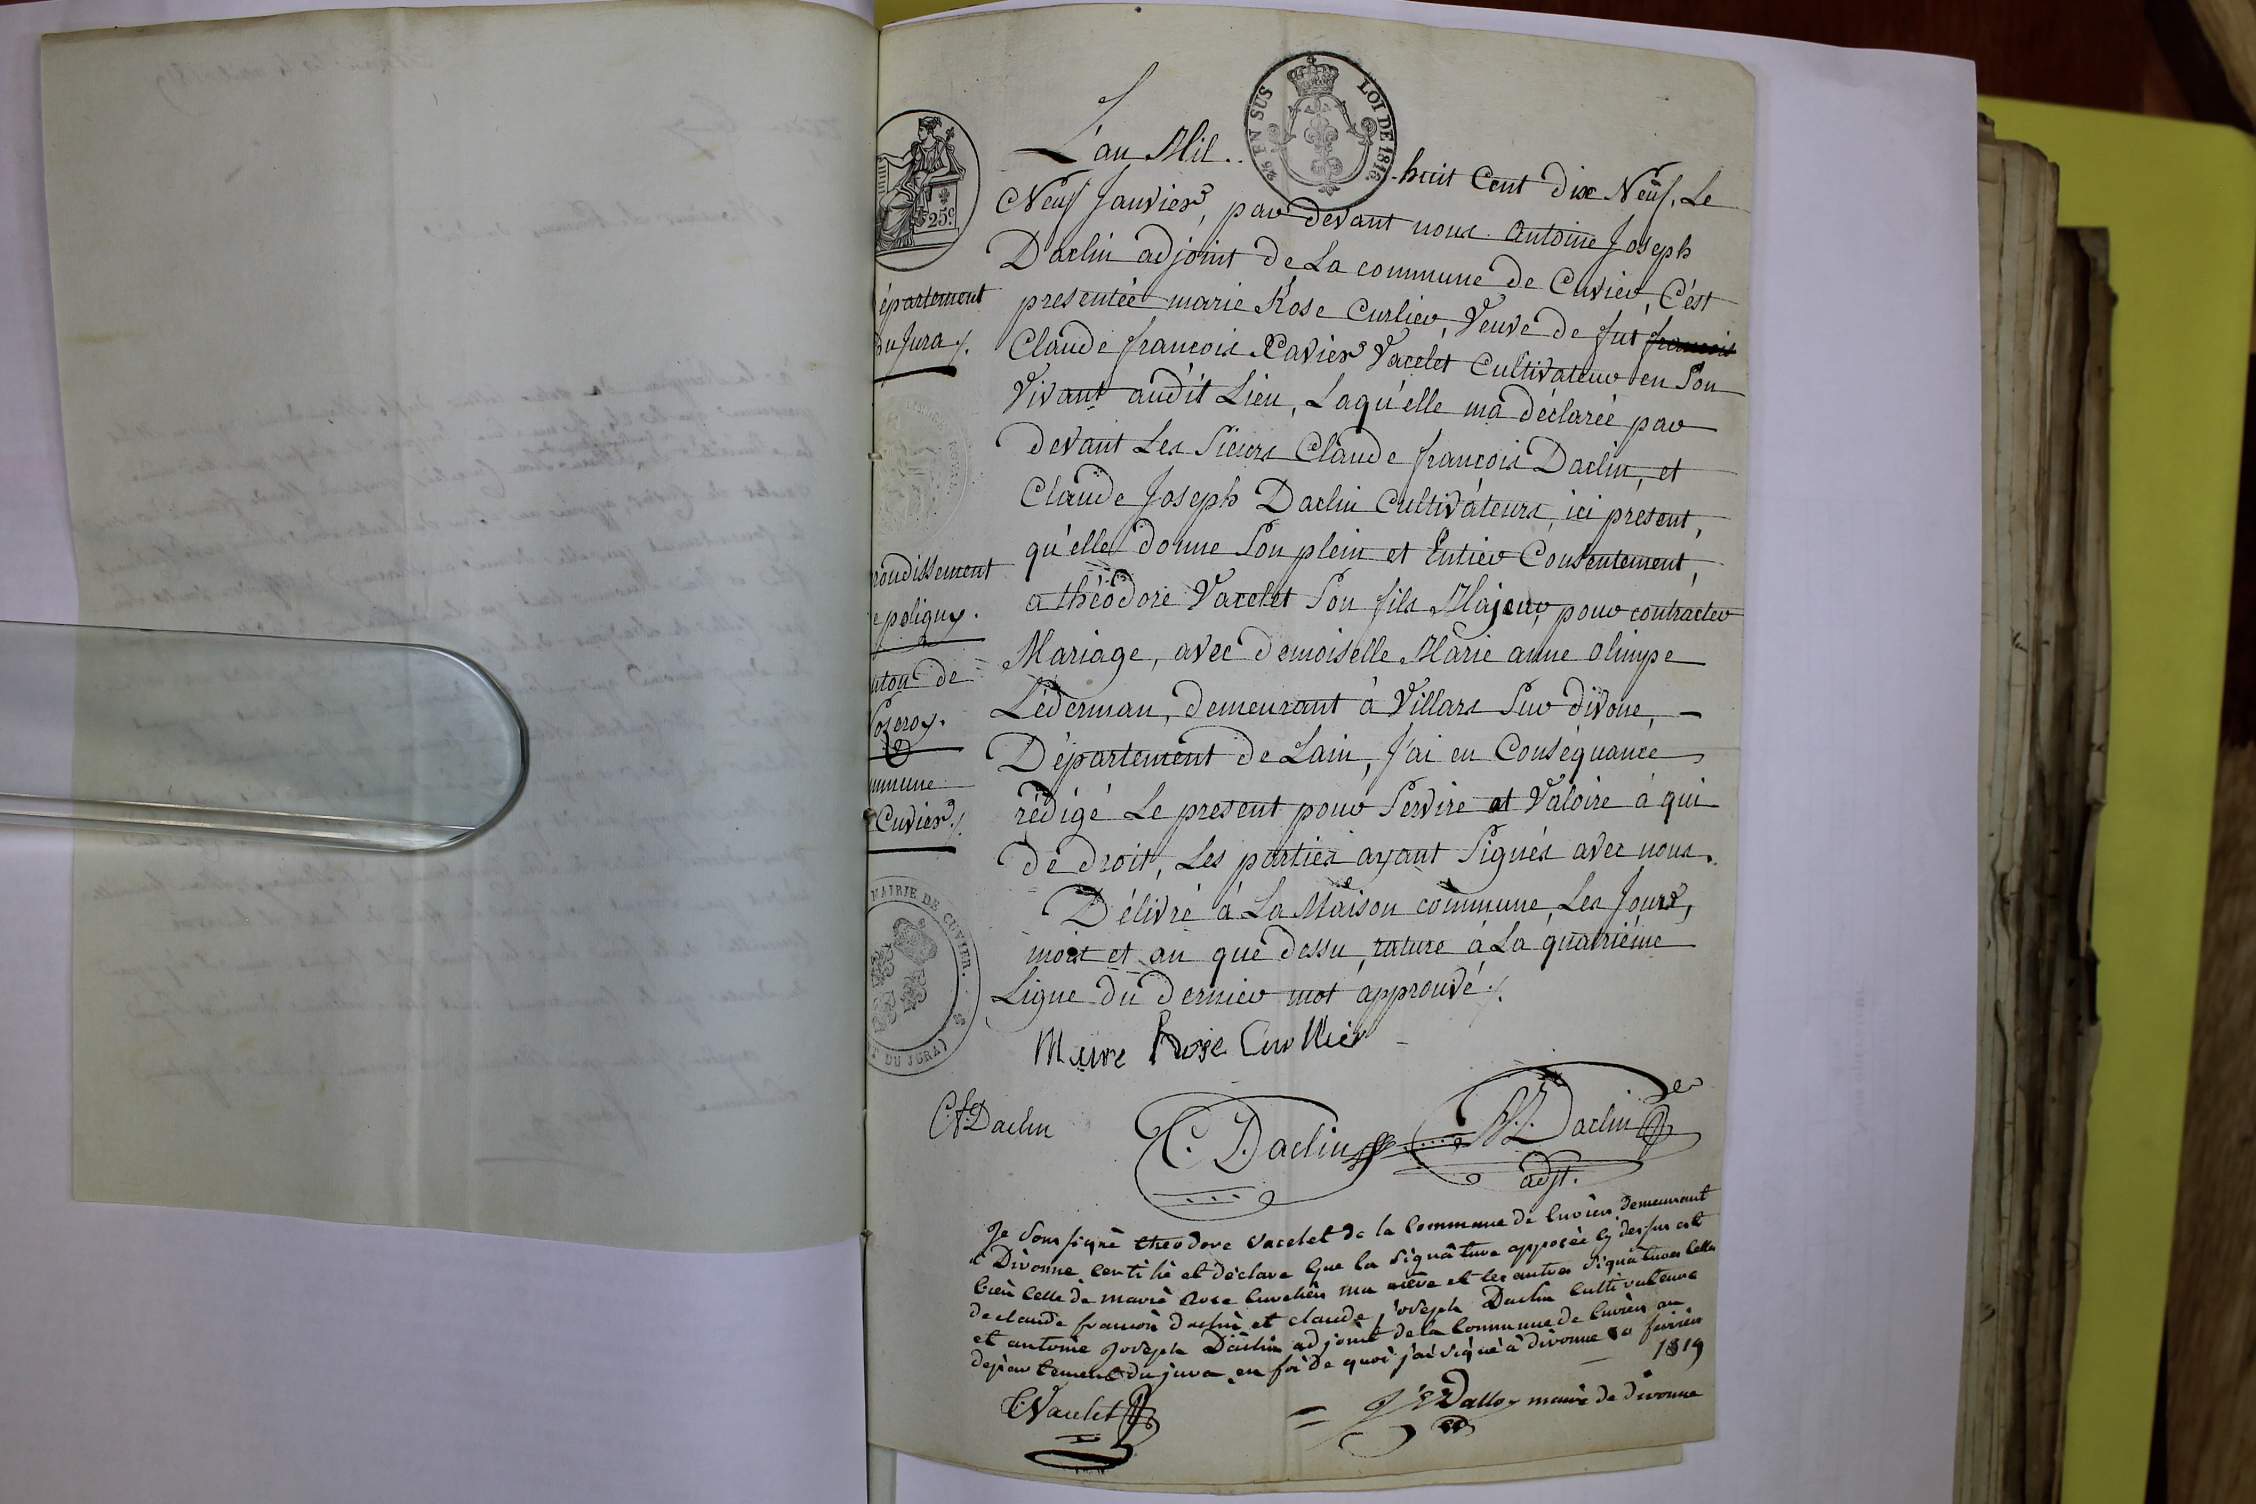 25 EN SUS
LOI DE 1816
25c
épartement
du Jura
rondissement
e poligny.
nton de
Nozeroy.
mmune
Cuvier
MAIRIE DE CUVIER.
T DU JURA)
L'an Mil.. huit Cent dix Neuf, Le
Neuf Janvier, par devant nous Antoine Joseph
Daclin adjoint de La commune de Cuvier, C'est
presentée marie Rose Curlier, Veuve de fut françois
Claude françois Xavier Vacelet Cultivateur en Son
Vivant audit Lieu, Laqu'elle ma déclarée par
devant Les Sieurs Claude françois Daclin, et
Claude Joseph Daclin Cultivateurs, ici present,
qu'elle donne Son plein et Entier Consentement,
a théodore Vacelet Son fils Majeur, pour contracter
Mariage, avec Demoiselle Marie anne olimpe
Léderman, demeurant à Villars Sur divone,
Département de Lain, J'ai en Conséquance
rédigé Le present pour Servire et Valoire à qui
de droit, Les parties ayant Signés avec nous.
Délivré à La Maison commune, Les Jour,
mois et an que dessu, rature à La quatrième
Ligne du dernier mot approuvé ./.
Marie Rose Curllier
C.f. Daclin
C. J. Daclin
A. J. Daclin
adjt.
Je Soussigné theodore Vacelet de la Commune de Cuvier demeurant
a Divonne certifié et déclare que la signature apposée cy dessus est
bien celle de marie Rose Curelier ma mère et les autres signatures celles
de claude francois daclin et claude joseph Daclin cultivateurs
et antoine joseph Daclin adjoint de la Commune de Cuvier au
departement du jura, en foi de quoi j'ai signé à divonne fevrier
1819
T. Vacelet
Dalloz maire de divonne